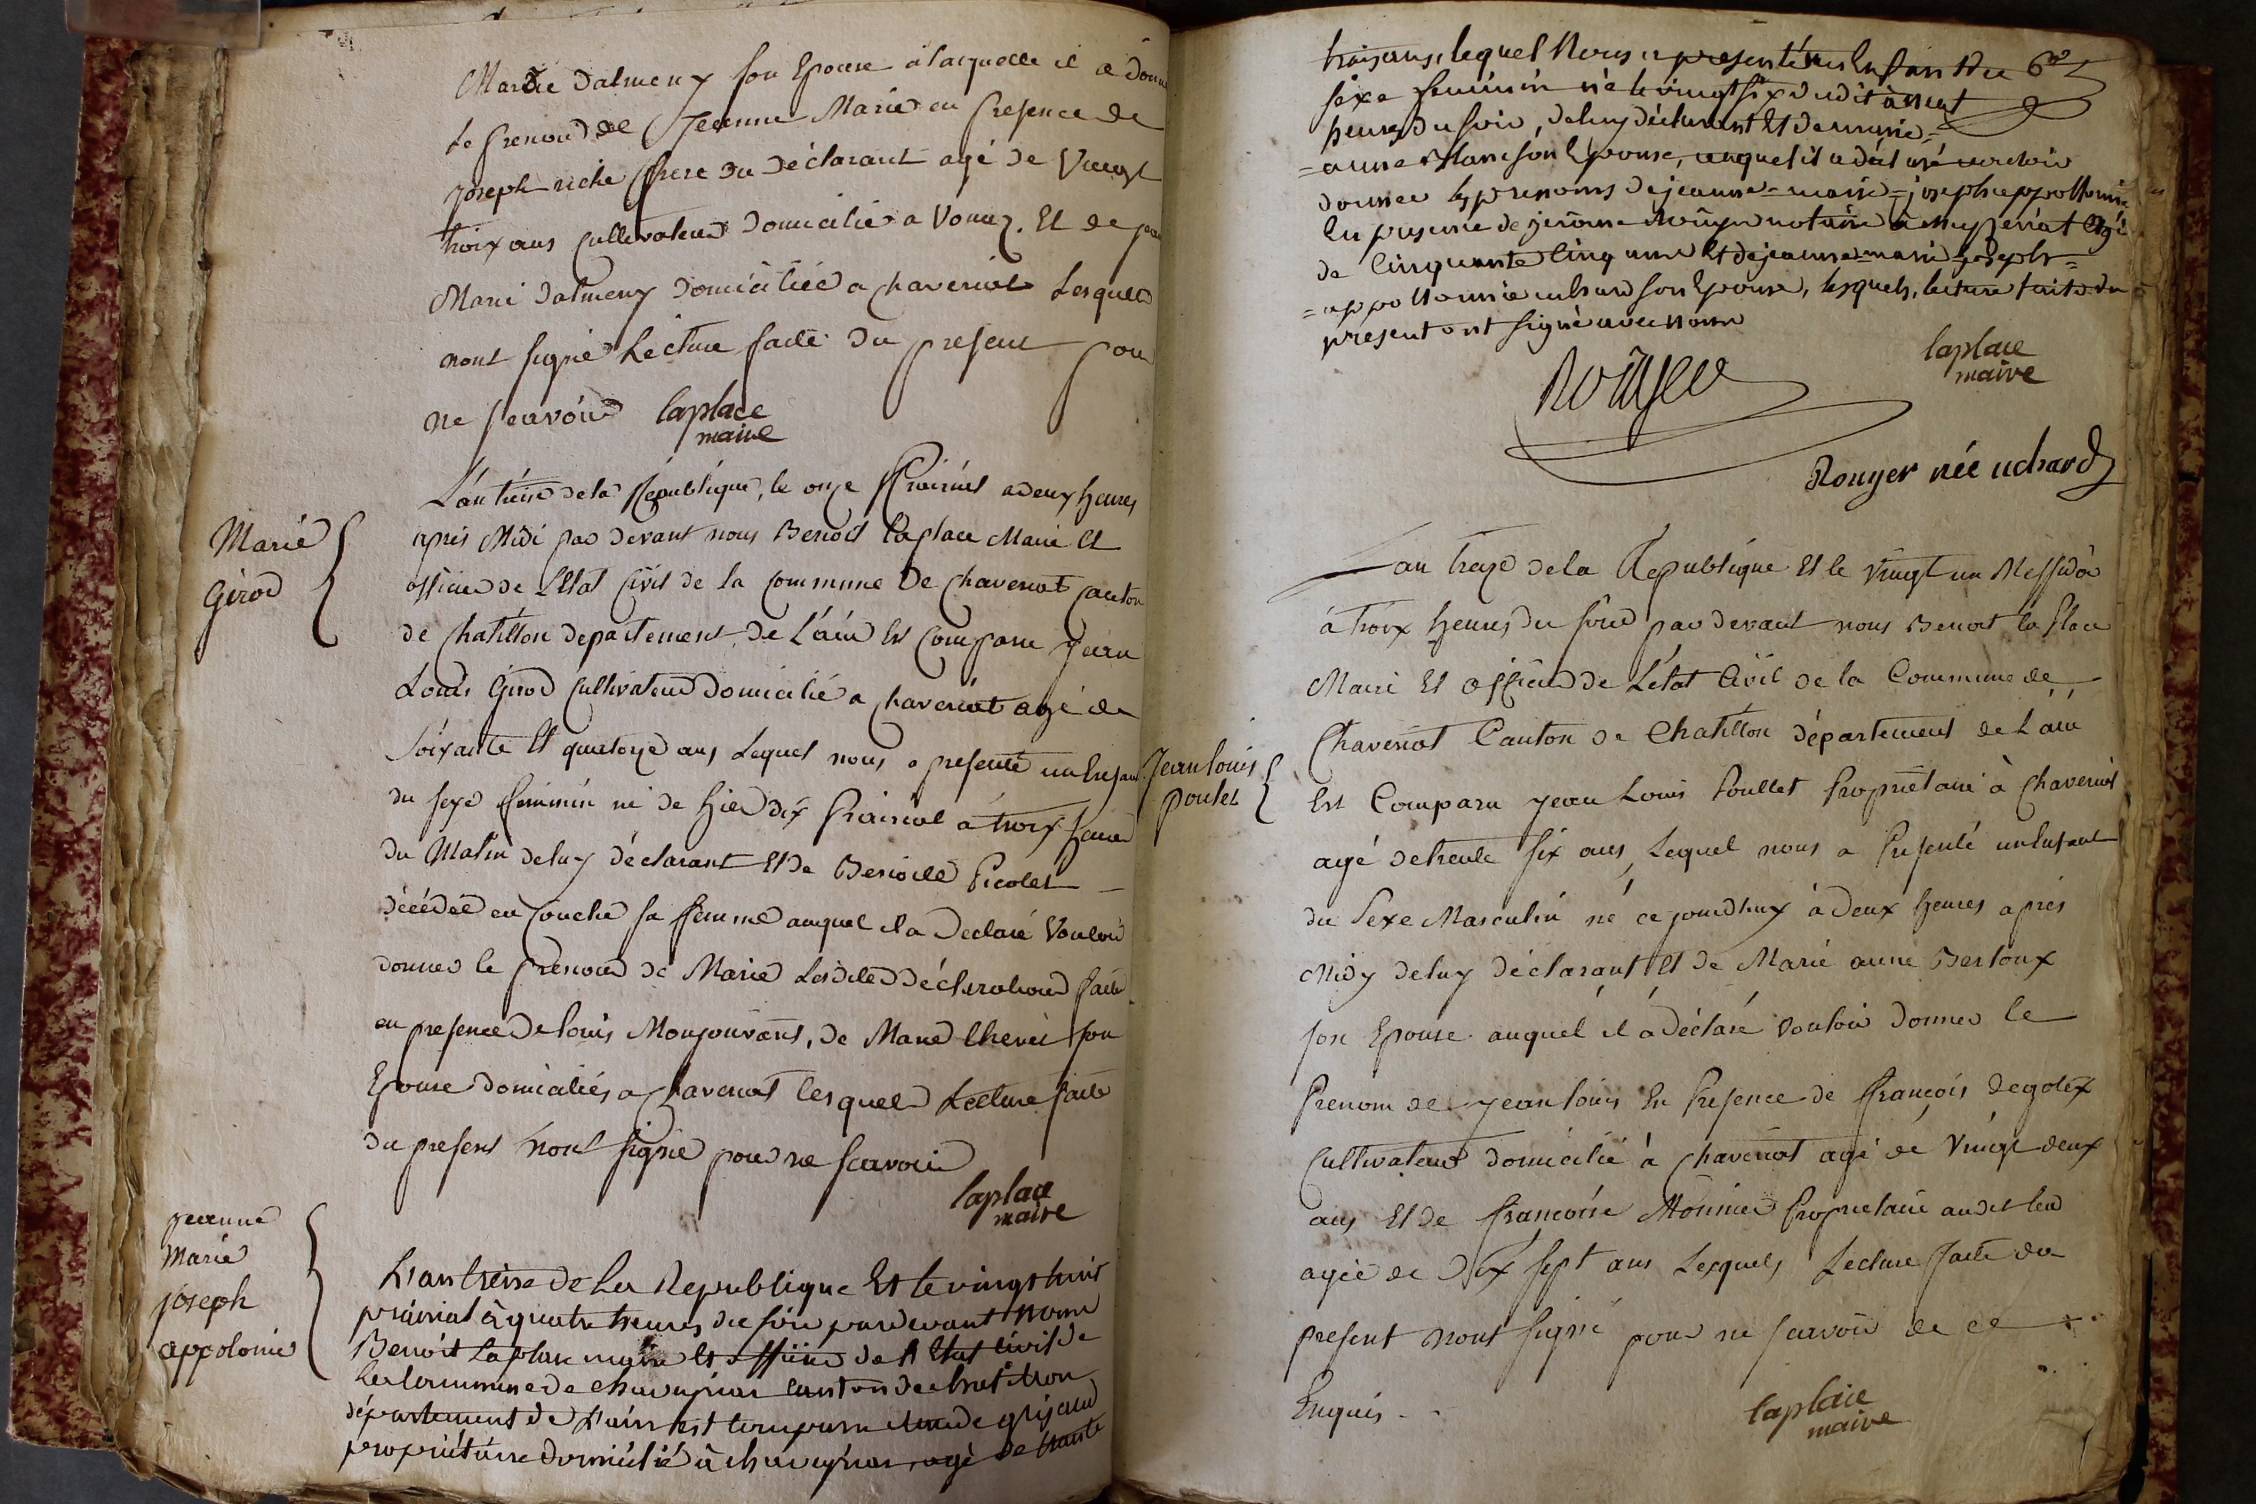 Marie Dalmeny son Epouse a laquelle il a donné
le prenom de Jeanne Marie en presence de
joseph riche frere du déclarant agé de Vingt
troix ans cultivateur domicilié a Vonnaz. Et de
Marie Dalmeny domiciliée a chaveriat Lesquels
nont signé Lecture faite du present pour
ne scavoir laplace
maire
Marie
Girod
L'an treize de la République, le onze Prairial a deux heures
après Midi par devant nous Benoit Laplace Maire Et
officier de L'Etat Civil de la commune De chaveriat canton
de chatillon departement de L'ain Est Comparu Jean
Louis Girod cultivateur domicilié a chaveriat agé de
Soixante Et quatorze ans Lequel nous a présenté un Enfant
du sexe feminin né de hier dix Prairial a troix heures
du Matin de luy déclarant Et de Benoite Picolet
décédée en couche sa femme auquel il a Declaré Vouloir
donner le prenom de Marie Lesdites déclarations faites
en presence de louis Monjouvant, de Marie Chevrier son
Epouse domiciliés a chaveriat lesquels Lecture faite
du present n'ont signé pour ne scavoir
laplace
maire
jeanne
Marie
joseph
appolonie
L'an treise de La Republique Et le vingt huit
prairial à quatre heures du soir pardevant nous
Benoit Laplace maire Et officier de l'Etat civil de
la Commune de chaveyriat canton de chatillon
département de L'ain est comparu Claude
propriétaire domicilié à chaveyriat, agé de trante
trois ans, lequel Nous a presenté un Enfant du
sexe feminin né le vingt six dudit à neuf
heures du soir, de luy déclarant Et de marie=
=anne son Epouse, auquel il a déclaré vouloir
donner les prenoms de jeanne=marie=joseph appollonie
En presence de jerôme Roüyer notaire à mezeriat agé
de Cinquante Cinq ans Et de jeanne=marie=joseph=
=appollonnie uchard son Epouse, lesquels, lecture faite du
present ont signé avec nous
Roüyer
laplace
maire
Rouyer née uchard
Jean louis
poulet
Lan treze de la Republique Et le vingt un Messidor
à troix heures du soir par devant nous Benoit la Place
Maire Et officier de L'état Civil de la Commune de
Chaveriat Canton de Chatillon département de L'ain
Est Comparu Jean Louis Poullet Propriétaire à Chaveriat
agé de trente six ans, Lequel nous a Présenté un Enfant
du Sexe Masculin né ce jourdhuy à Deux heures après
Midy de luy déclarant Et de Marie anne Berloux
son Epouse auquel il a déclaré vouloir donner le
Prenom de Jean louis En Presence de françois degolex
Cultivateur domicilié à chaveriat agé de Vingt deux
ans Et de françoise Monnier Proprietaire audit lieu
agée de Dix sept ans Lesquels Lecture faite du
present nont signé pour ne scavoir de ce
Enquis.
laplace
maire